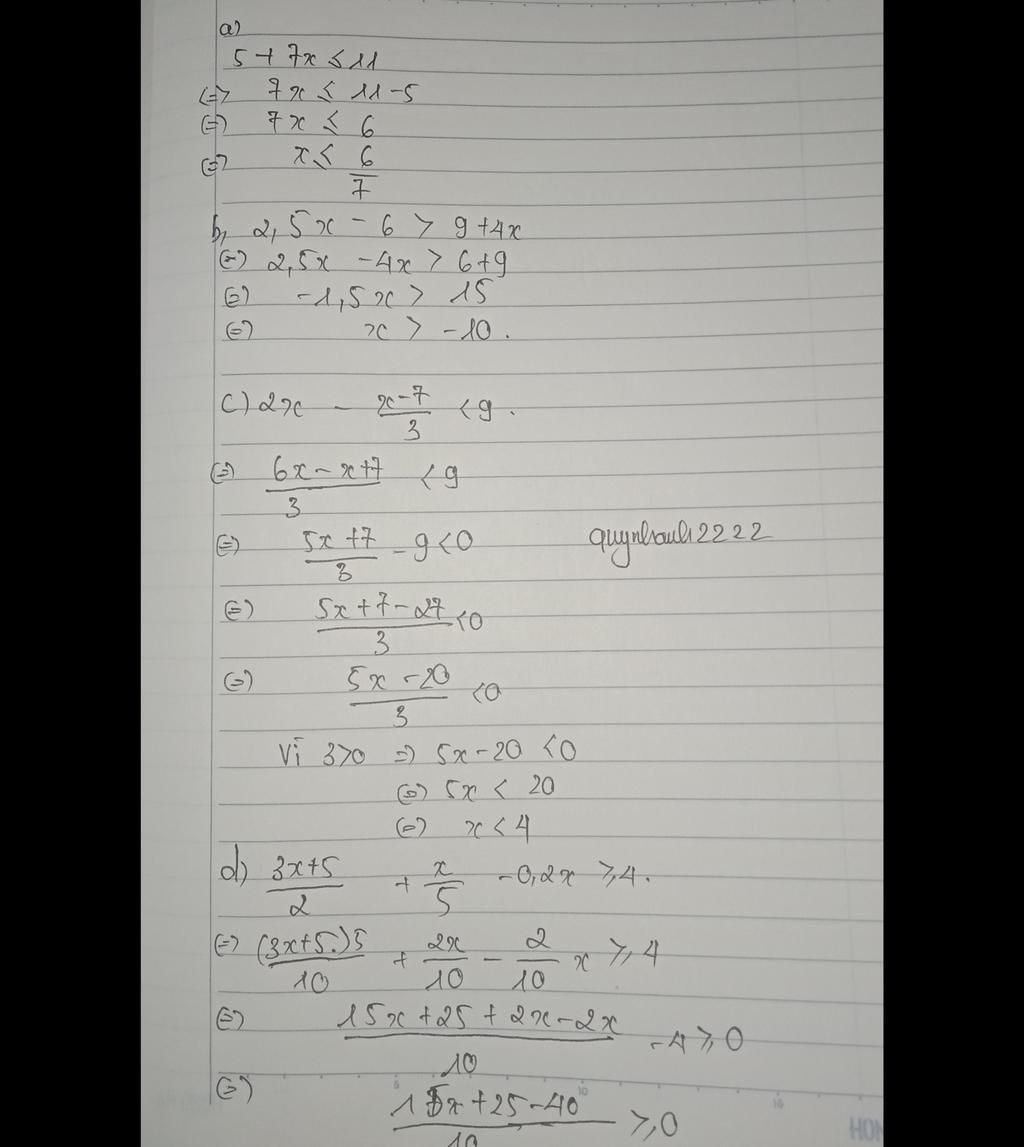 a)
5 + 7x ≤ 11
<=> 7x ≤ 11-5
<=> 7x ≤ 6
<=> x ≤ 6/7
b, 2,5x - 6 > 9 + 4x
<=> 2,5x - 4x > 6+9
<=> -1,5x > 15
<=> x > -10.
c) 2x - (x-7)/3 < 9.
<=> (6x - x+7)/3 < 9
<=> (5x+7)/3 - 9 < 0
quynhauh2222
<=> (5x+7-27)/3 < 0
<=> (5x-20)/3 < 0
Vì 3>0 => 5x-20 < 0
<=> 5x < 20
<=> x < 4
d) (3x+5)/2 + x/5 - 0,2x ≥ 4.
<=> (3x+5.)5/10 + 2x/10 - 2/10 x ≥ 4
<=> (15x + 25 + 2x - 2x)/10 - 4 ≥ 0
<=> (15x + 25 - 40)/10 ≥ 0